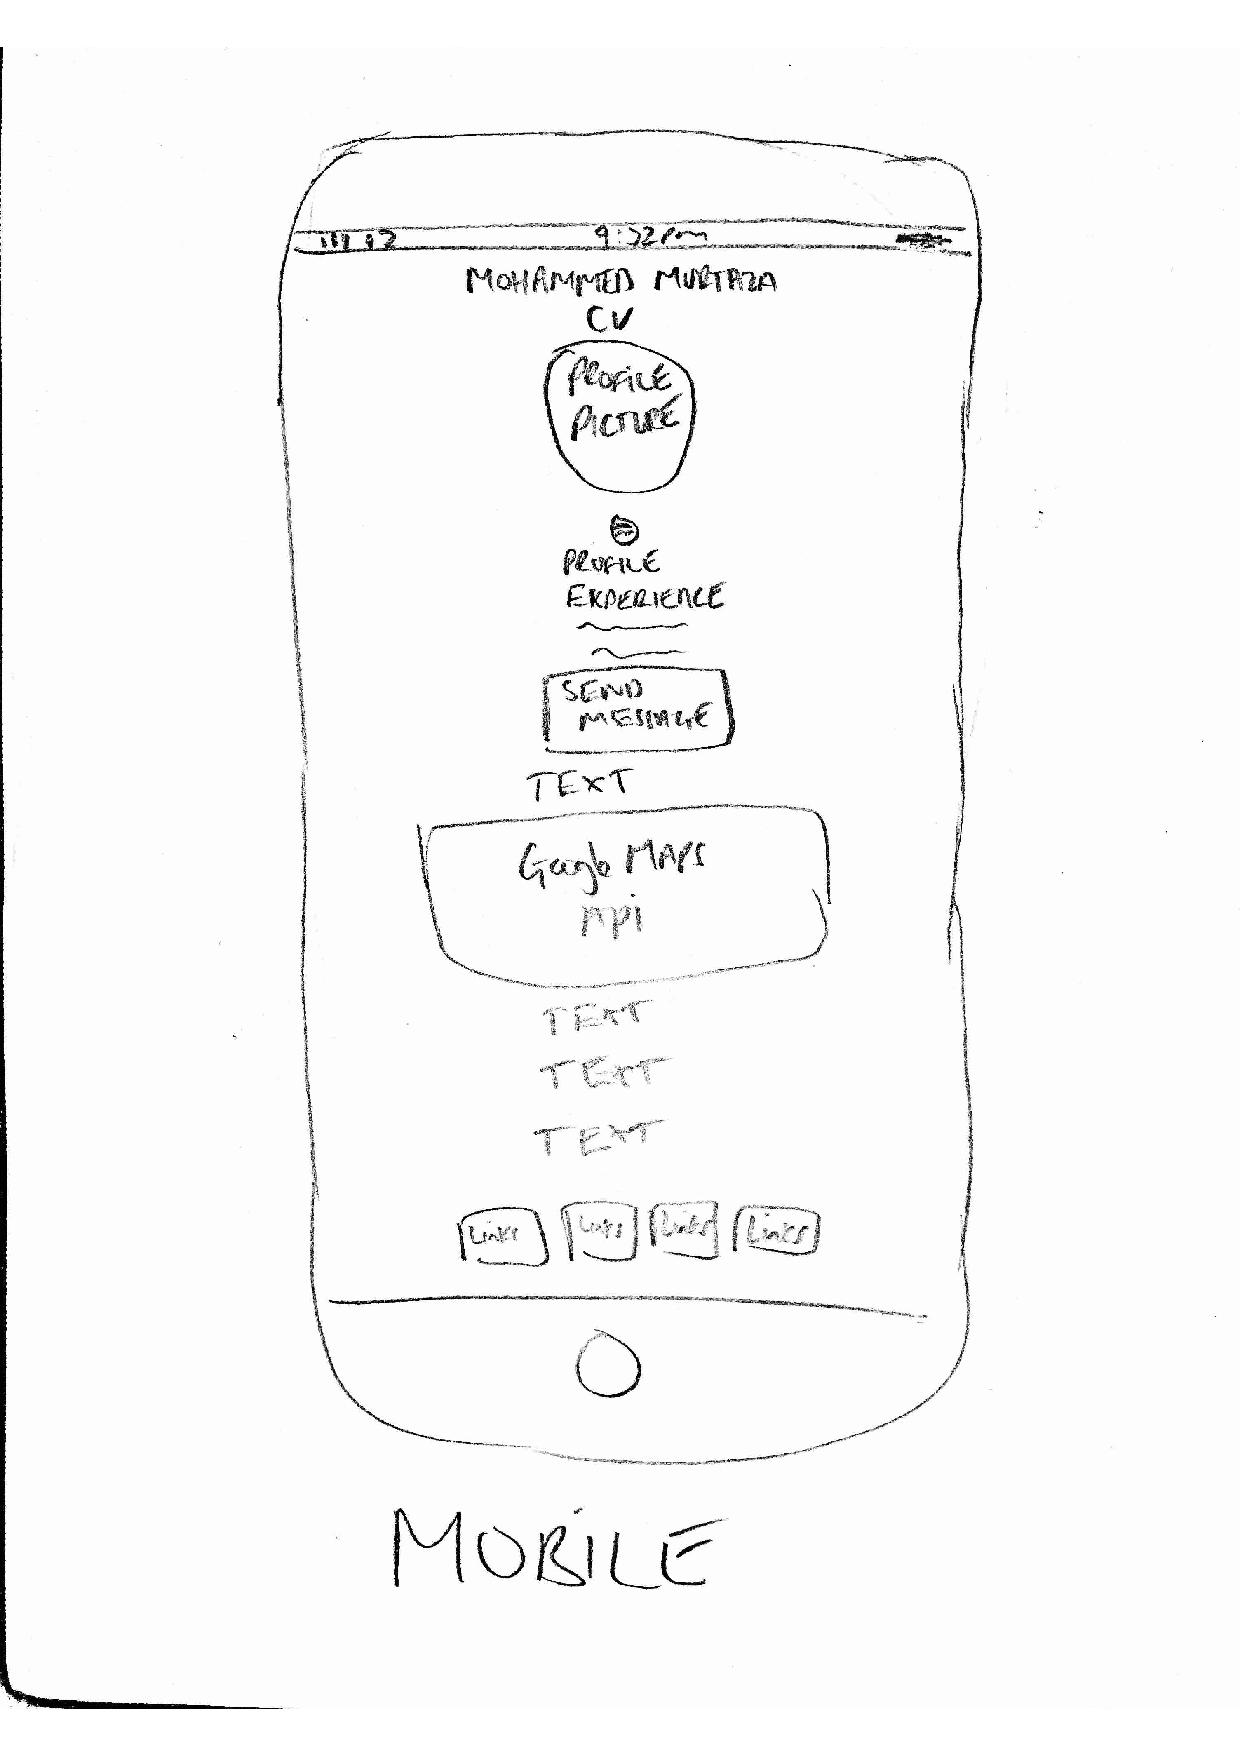 9:32pm
MOHAMMED MURTAZA
CV
PROFILE
PICTURE
PROFILE
EXPERIENCE
SEND
MESSAGE
TEXT
Google MAPS
API
TEXT
TEXT
TEXT
Links Links Links Links
MOBILE